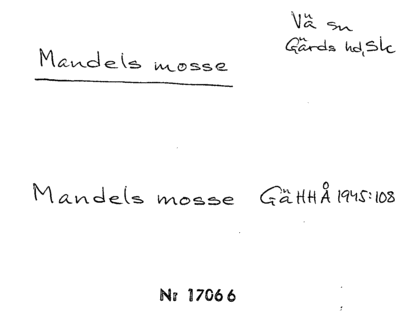 Vä sn
Gärds hd, Sk
Mandels mosse
Mandels mosse GäHHÅ 1945:108
Nr 17066